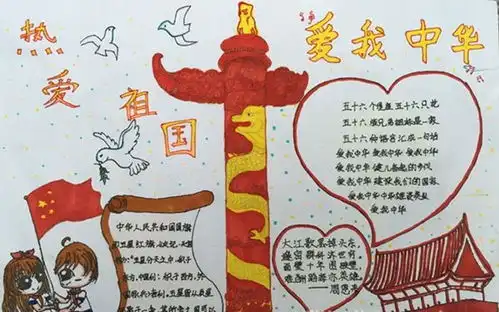 热
爱
祖
国
爱我中华
五十六个星座五十六只花
五十六族兄弟姐妹是一家
五十六种语言汇成一句话
爱我中华 爱我中华 爱我中华
爱我中华 健儿奋起的步伐
爱我中华 建设我们的国家
爱我中华中华雄姿英发
爱我中华
大江歌罢掉头东，
邃密群科济世穷。
面壁十年图破壁，
难酬蹈海亦英雄
——周恩来
中华人民共和国国旗
五星红旗
"五星分天之中，积于
东方，中国利；积于西方，外
国